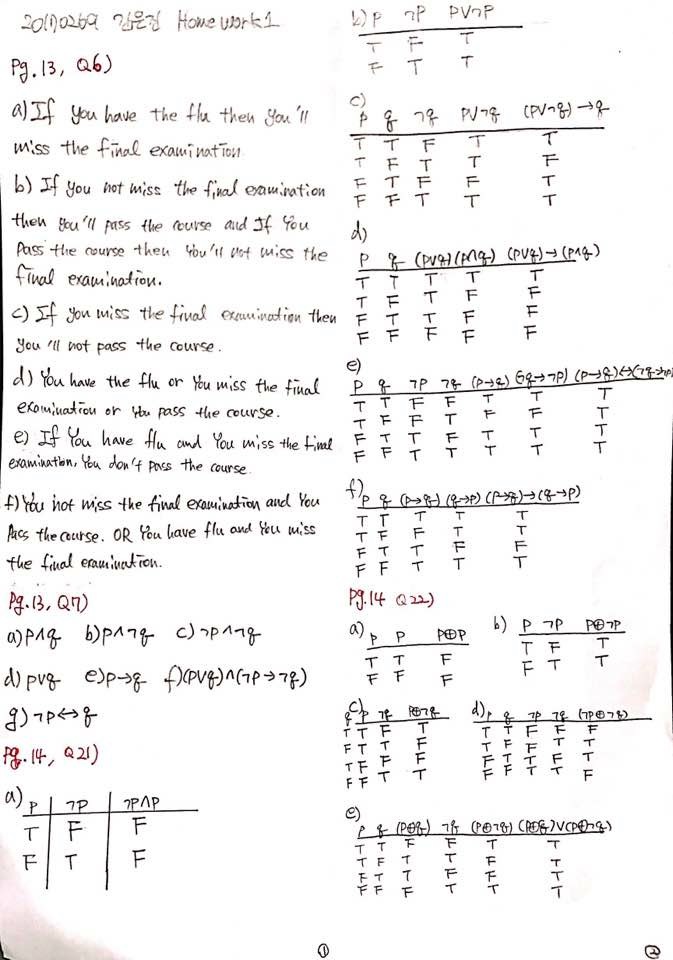 Homework1
Pg.13, Q6)
a) If you have the flu then you'll
miss the final examination
b) If you not miss the final examination
then you'll pass the course and If You
Pass the course then You'll not miss the
final examination.
c) If you miss the final examination then
you'll not pass the course.
d) You have the flu or You miss the final
examination or you pass the course.
e) If You have flu and You miss the final
examination, You don't pass the course
f) You not miss the final examination and You
Pass the course. OR You have flu and You miss
the final examination.
Pg.13, Q7)
a) p∧q b) p∧¬q c) ¬p∧¬q
d) p∨q e) p→q f) (p∨q)∧(¬p→¬q)
g) ¬p↔q
Pg.14, Q21)
a) P ¬P ¬P∧P
T F F
F T F
①
b) P ¬P P∨¬P
T F T
F T T
c)
P q ¬q P∨¬q (P∨¬q)→q
T T F T T
T F T T F
F T F F T
F F T T T
d)
P q (p∨q) (p∧q) (p∨q)→(p∧q)
T T T T T
T F T F F
F T T F F
F F F F F
e)
P q ¬P ¬q (p→q) (¬q→¬p) (p→q)↔(¬q→¬p)
T T F F T T T
T F F T F F T
F T T F T T T
F F T T T T T
f)
P q (p→q) (q→p) (p→q)→(q→p)
T T T T T
T F F T T
F T T F F
F F T T T
Pg.14 Q22)
a) P P P⊕P
T T F
F F F
b) P ¬P P⊕¬P
T F T
F T T
c)
q P ¬q P⊕¬q
T T F T
F T T F
T F F F
F F T T
d) P q ¬P ¬q (¬p⊕¬q)
T T F F F
T F F T T
F T T F T
F F T T F
e)
P q (P⊕q) ¬q (P⊕¬q) (P⊕q)∨(P⊕¬q)
T T F F T T
T F T T F T
F T T F F T
F F F T T T
②